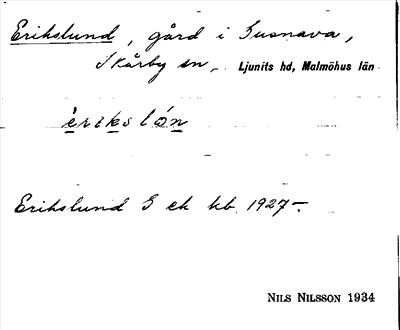 Erikslund, gård i Gusnava,
Skårby sn, Ljunits hd, Malmöhus län
èrikslón
Erikslund G ek kb 1927-.
Nils Nilsson 1934